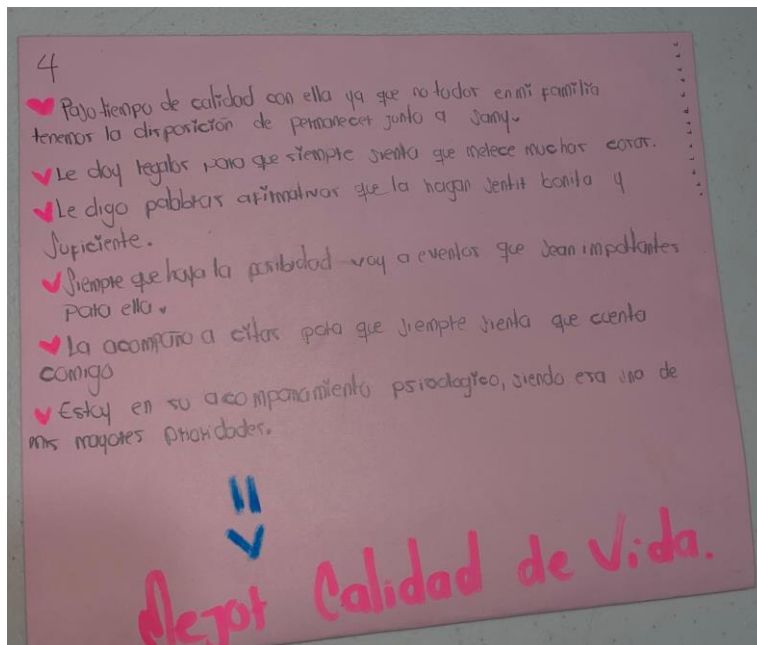 4
Paso tiempo de calidad con ella ya que no todos en mi familia
tenemos la disposición de permanecer junto a Samy.
Le doy regalos para que siempre sienta que merece muchas cosas.
Le digo palabras afirmativas que la hagan sentir bonita y
suficiente.
Siempre que haya la posibidad voy a eventos que sean importantes
para ella.
La acompaño a citas para que siempre sienta que cuenta
comigo
Estoy en su acompañamiento psicologico, siendo esa uno de
mis mayores prioridades.
Mejor Calidad de Vida.